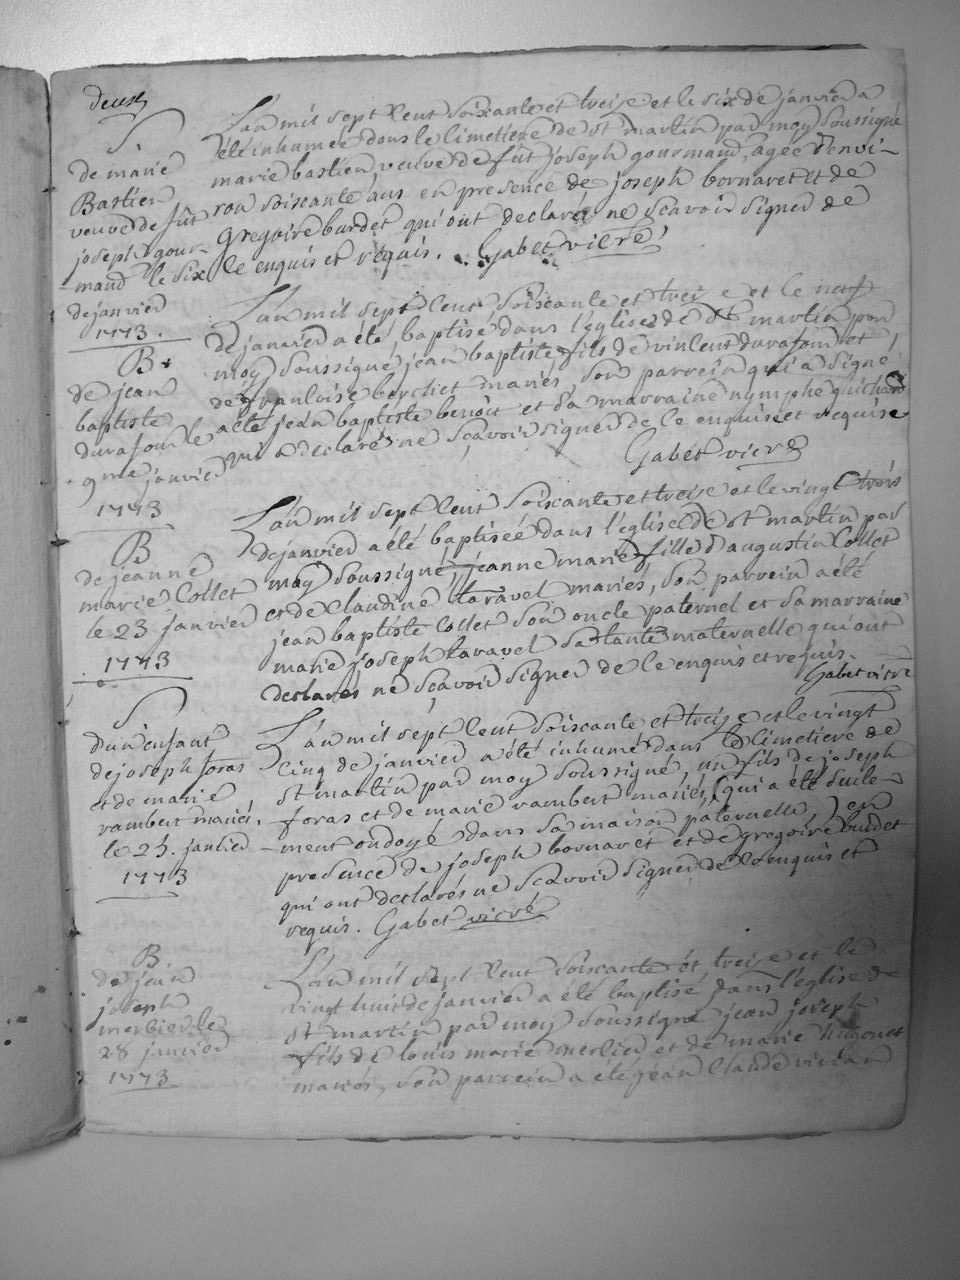 deux
S.
de marie
Bastien
veuve de fût
joseph gour-
mand le six
de janvier
1773.
L'an mil sept cent soixante et treise et le six de janvier a
été inhumée dans le cimetiere de st martin par moy soussigné
marie bastien, veuve de fût joseph gourmand, agée d'envi-
ron soixante ans en presence de joseph bornaret et de
gregoire burdet qui ont declarés ne scavoir signer de
ce enquis et requis. Gabet vicre
B.
de jean
baptiste
durafour le
9me janvier
1773
L'an mil sept cent soixante et treise et le neuf
de janvier a été baptisé dans l'église de st martin par
moy soussigné jean baptiste, fils de vincent durafour et
de françoise berchet mariés, son parrein qui a signé
a été jean baptiste benoit et sa marraine nymphe guichard
qui a declaré ne sçavoir signer de ce enquise et requise
Gabet vicre
B
de jeanne
marie Collet
le 23 janvier
1773
L'an mil sept cent soixante et treise et le vingt trois
de janvier a été baptisée dans l'église de st martin par
moy soussigné, jeanne marie fille d'augustin Collet
et de Claudine taravel mariés, son parrein a été
jean baptiste Collet son oncle paternel et sa marraine
marie joseph taravel sa tante maternelle qui ont
declarés ne sçavoir signer de ce enquis et requis.
Gabet vicre
S
d'un enfant
de joseph foras
et de marie
rambert mariés,
le 25. janvier
1773
L'an mil sept cent soixante et treise et le vingt
cinq de janvier a été inhumé dans le cimetiere de
st martin par moy soussigné, un fils de joseph
foras et de marie rambert mariés, qui a été seule-
ment ondoyé dans sa maison paternelle, en
presence de joseph bornaret et de gregoire burdet
qui ont declarés ne scavoir signer de ce enquis et
requis. Gabet vicré
B.
de jean
joseph
mercier le
28 janvier
1773
L'an mil sept cent soixante et treise et le
vingt huit de janvier a été baptisé dans l'église de
st martin par moy soussigné jean joseph
fils de louis marie mercier et de marie hugonet
mariés, son parrein a été jean claude